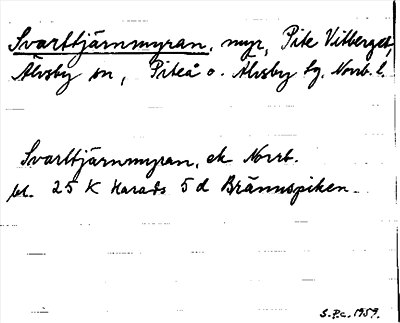 Svarttjärnmyran, myr, Pite Vitberget,
Älvsby sn, Piteå o. Älvsby tg, Norrb. l.
Svarttjärnmyran, ek Norrb.
bl. 25 K Harads 5 d Brännspiken.
S.P.c. 1959.